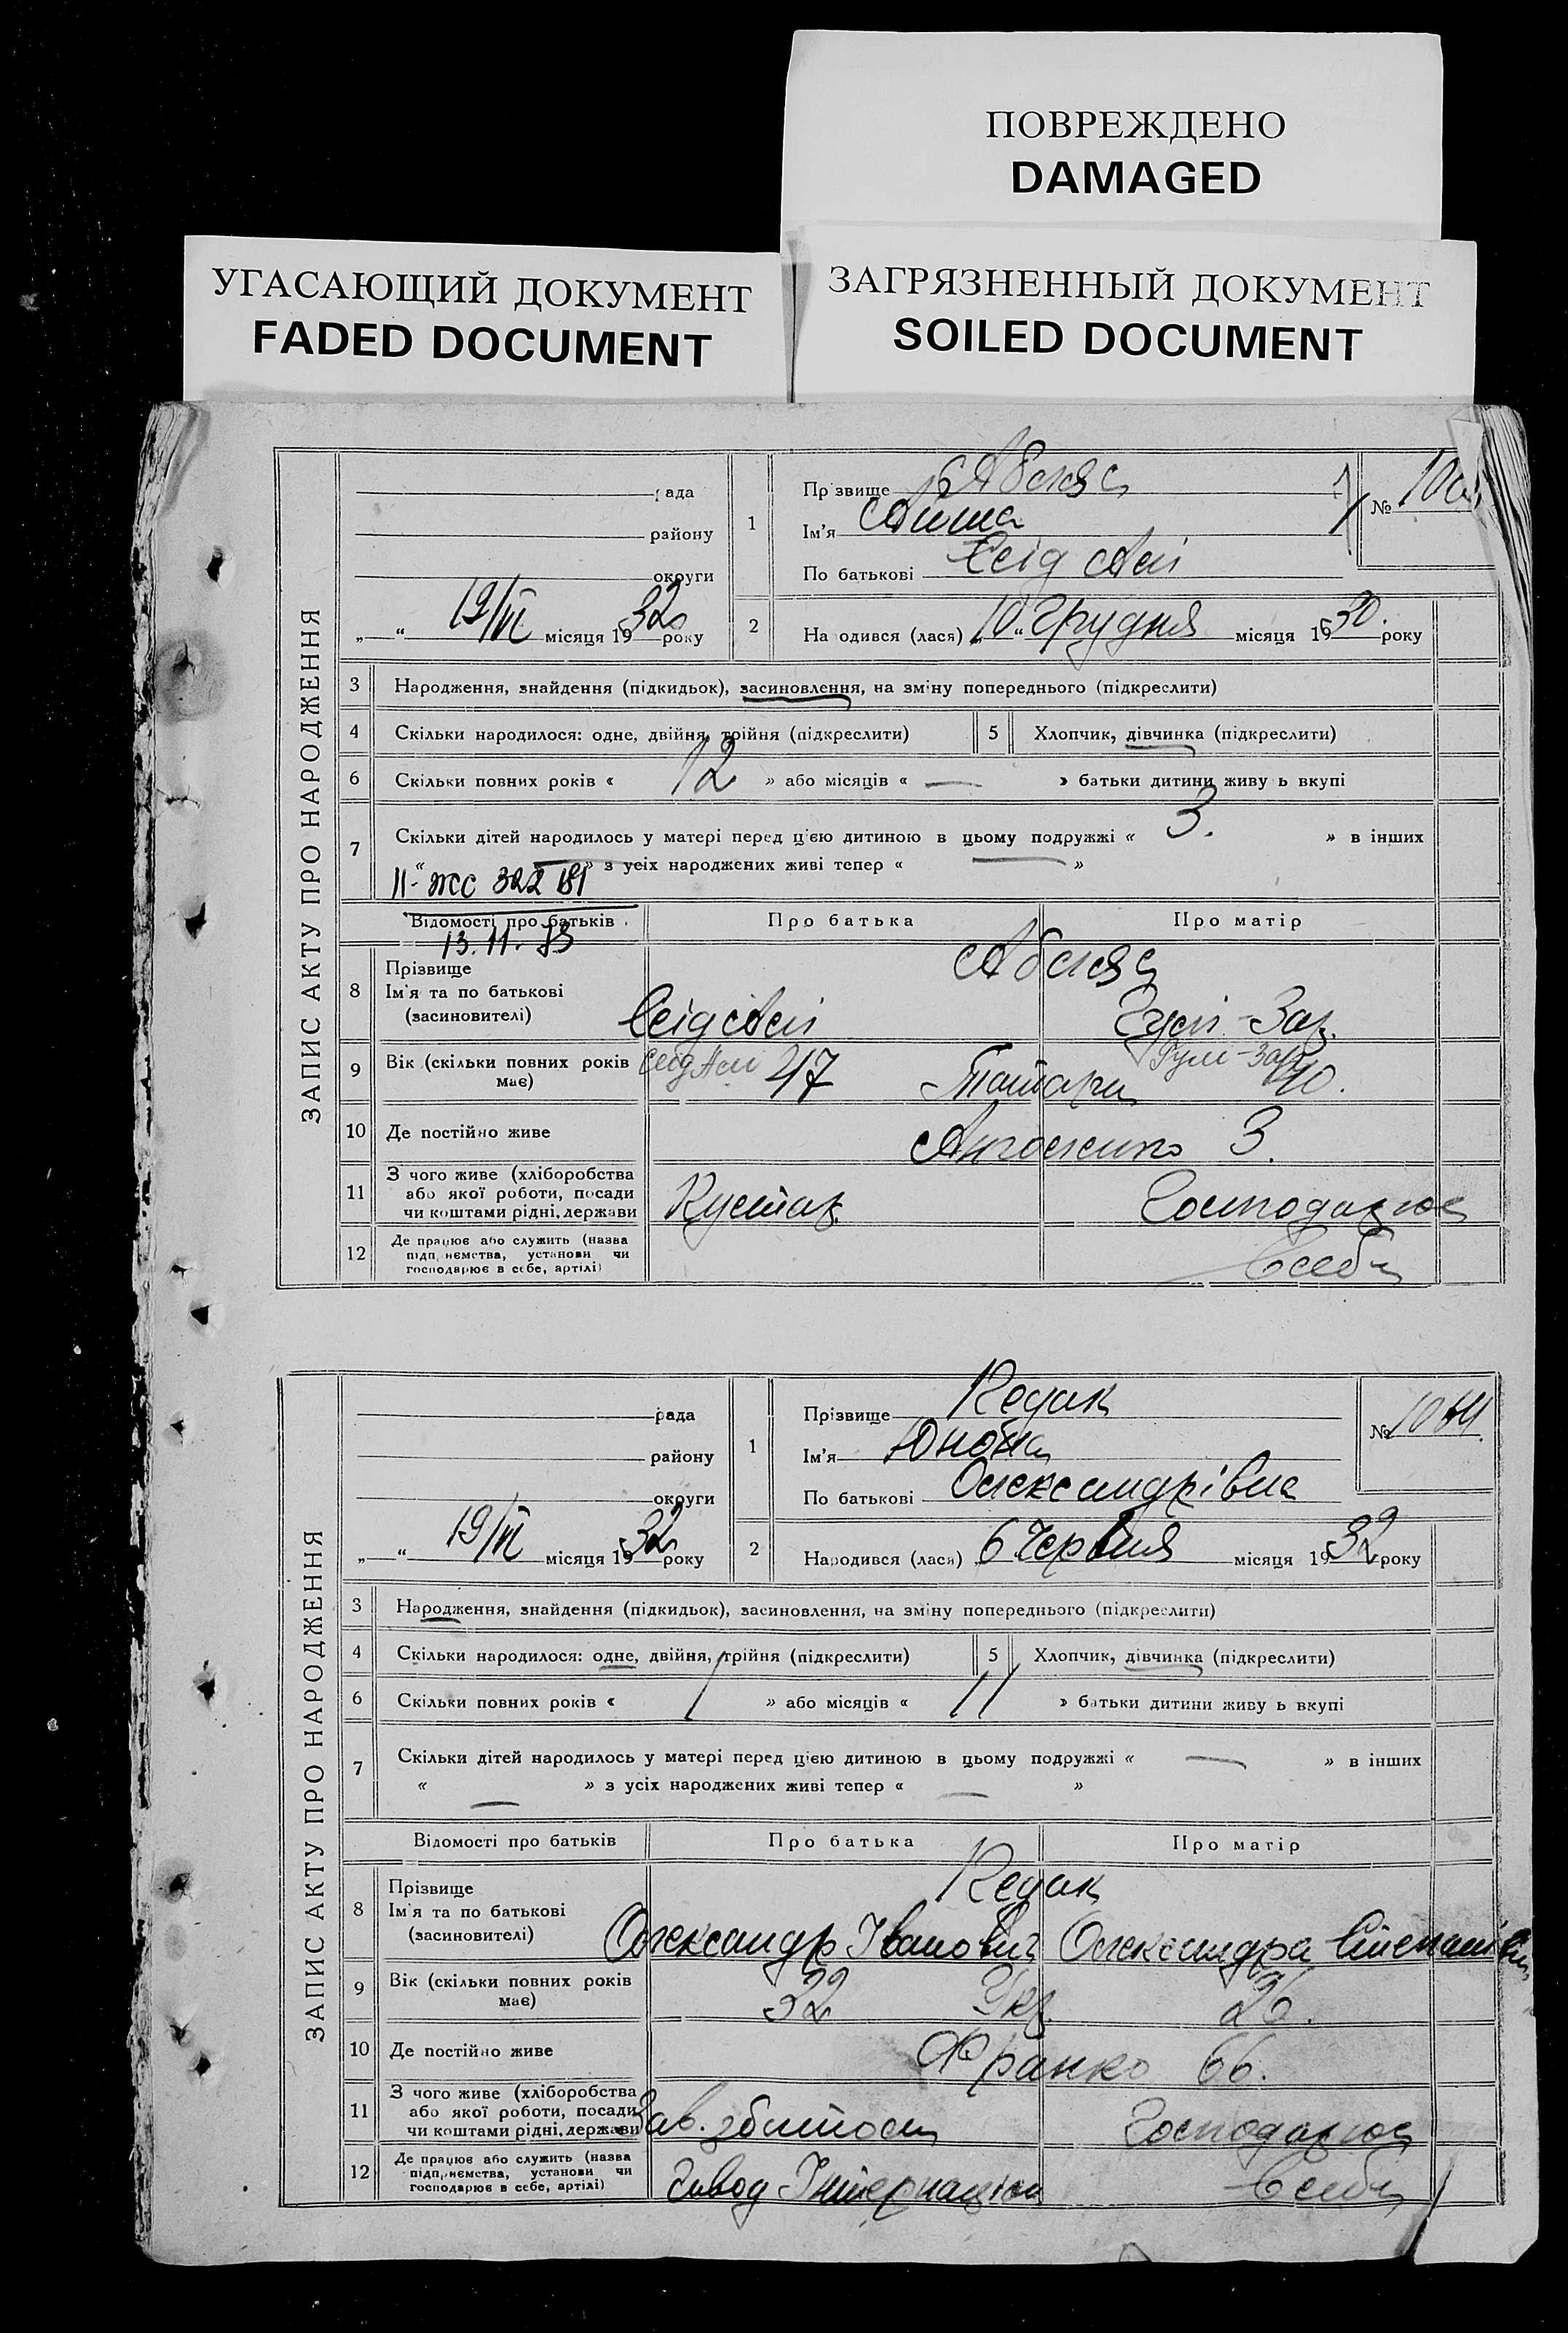 ПОВРЕЖДЕНО
DAMAGED
УГАСАЮЩИЙ ДОКУМЕНТ
FADED DOCUMENT
ЗАГРЯЗНЕННЫЙ ДОКУМЕНТ
SOILED DOCUMENT
ЗАПИС АКТУ ПРО НАРОДЖЕННЯ
рада
району
округи
19/VI місяця 1932 року
1
Прізвище
Ім'я
По батькові Сеід Алі
№
2 Народився (лася) „10“ Грудня місяця 1930. року
3 Народження, знайдення (підкидьок), засиновлення, на зміну попереднього (підкреслити)
4 Скільки народилося: одне, двійня, трійня (підкреслити)
5 Хлопчик, дівчинка (підкреслити)
6 Скільки повних років « 12 » або місяців « — » батьки дитини живуть вкупі
7 Скільки дітей народилось у матері перед цією дитиною в цьому подружжі « 3. » в інших
« — » з усіх народжених живі тепер « — »
II-ЖС 322181
13.11.
Відомості про батьків
Про батька
Про матір
8 Прізвище
Ім'я та по батькові
(засиновителі)
Сеід Алі
Гулі-Зар.
Сеід Али
Гули-Зар
9 Вік (скільки повних років має)
47
Татари
40.
10 Де постійно живе
3.
11 З чого живе (хліборобства або якої роботи, посади чи коштами рідні, держави
Кустар.
Господарює
12 Де працює або служить (назва підприємства, установи чи господарює в себе, артілі)
в себе
ЗАПИС АКТУ ПРО НАРОДЖЕННЯ
рада
району
округи
19/VI місяця 1932 року
1
Прізвище Редак
Ім'я
По батькові Олександрівна
№
2 Народився (лася) 6 Червня місяця 1932 року
3 Народження, знайдення (підкидьок), засиновлення, на зміну попереднього (підкреслити)
4 Скільки народилося: одне, двійня, трійня (підкреслити)
5 Хлопчик, дівчинка (підкреслити)
6 Скільки повних років « 1 » або місяців « 11 » батьки дитини живуть вкупі
7 Скільки дітей народилось у матері перед цією дитиною в цьому подружжі « — » в інших
« — » з усіх народжених живі тепер « — »
Відомості про батьків
Про батька
Про матір
8 Прізвище
Ім'я та по батькові
(засиновителі)
Редак
Олександр Іванович
Олександра Степанівна
9 Вік (скільки повних років має)
32
Укр.
26.
10 Де постійно живе
Франко 66.
11 З чого живе (хліборобства або якої роботи, посади чи коштами рідні, держави
Зав.
Господарює
12 Де працює або служить (назва підприємства, установи чи господарює в себе, артілі)
Завод Інтернаціон
в себе